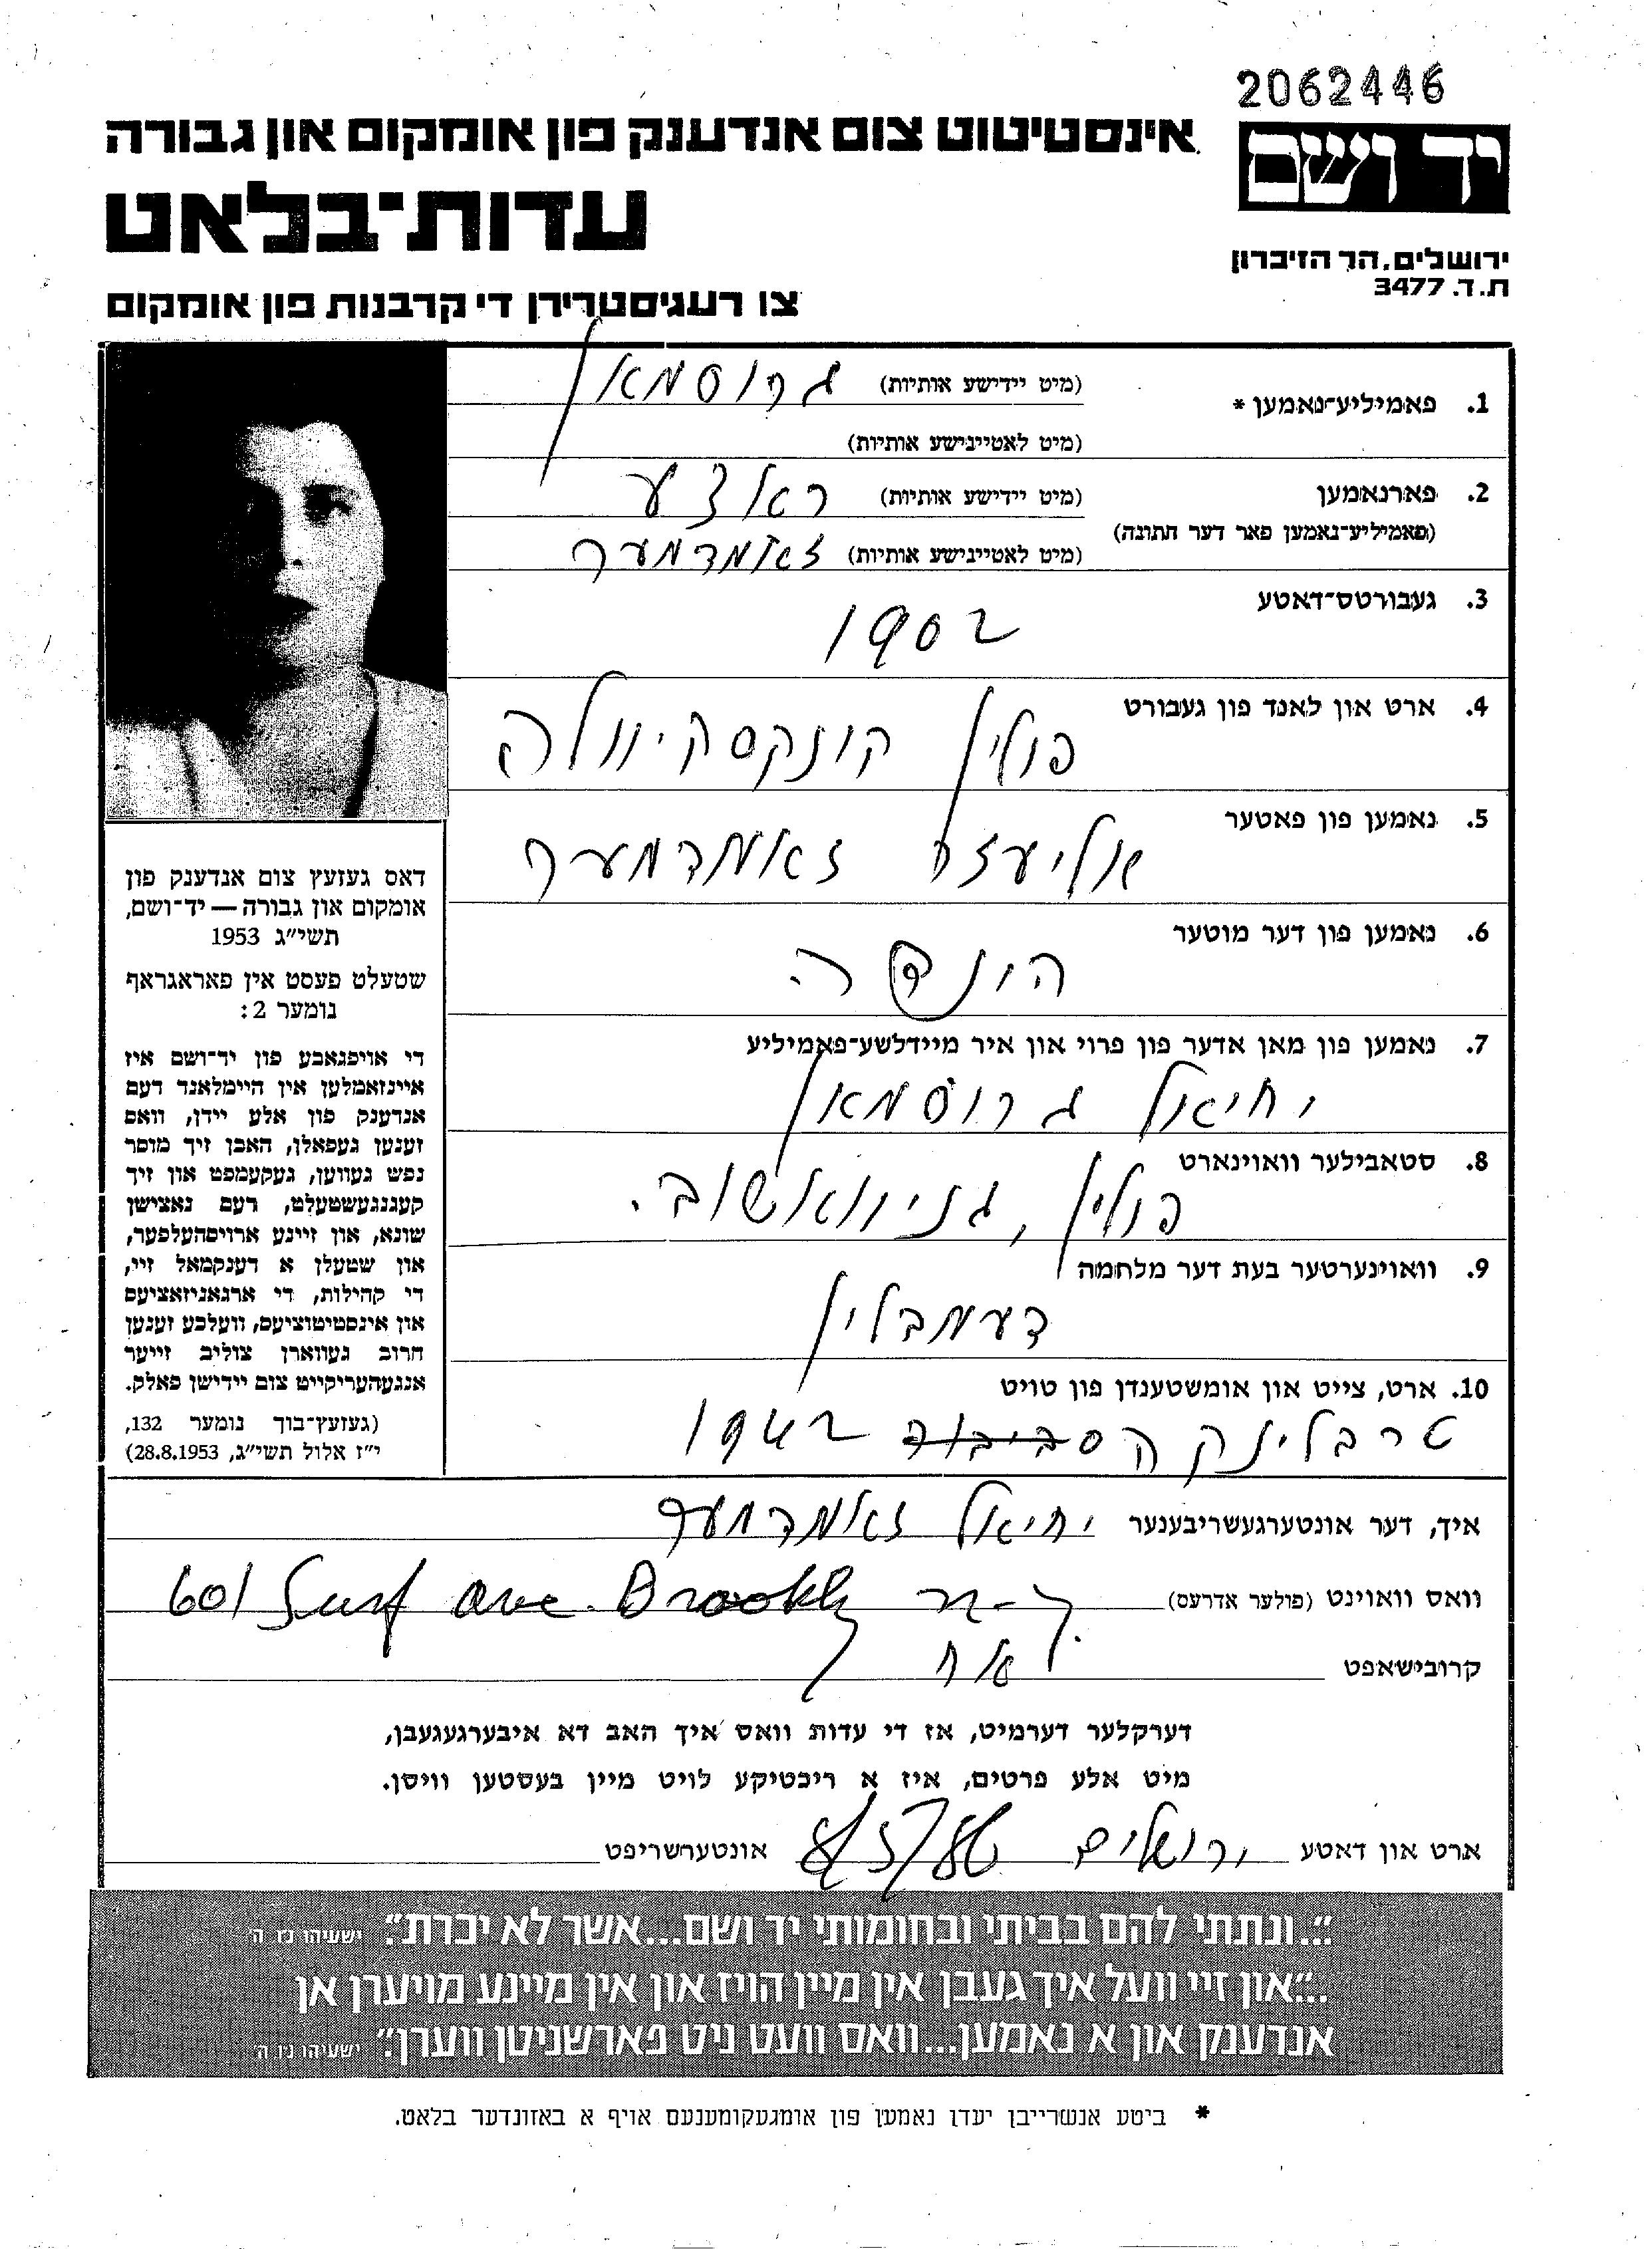 2062446
אינסטיטוט צום אנדענק פון אומקום און גבורה
יד ושם
עדות־בלאט
ירושלים, הר הזיכרון
ת. ד. 3477
צו רעגיסטרירן די קרבנות פון אומקום
1. פאמיליע־נאמען *
(מיט יידישע אותיות) גרוסמאן
(מיט לאטיינישע אותיות)
2. פארנאמען
(מיט יידישע אותיות) ראלזע
(פאמיליע־נאמען פאר דער חתונה)
(מיט לאטיינישע אותיות) זאמדמער
3. געבורטס־דאטע
1902
4. ארט און לאנד פון געבורט
פולין קונקסקיוולה
5. נאמען פון פאטער
אליעזר זאמדמער
6. נאמען פון דער מוטער
הונדה
7. נאמען פון מאן אדער פון פרוי און איר מיידלשע־פאמיליע
יחיאל גרוסמאן
8. סטאבילער וואוינארט
פולין, גניוואשוב.
9. וואוינערטער בעת דער מלחמה
דעמבלין
10. ארט, צייט און אומשטענדן פון טויט
טרבלינק הסביבה 1942
דאס געזעץ צום אנדענק פון
אומקום און גבורה — יד־ושם,
תשי״ג 1953
שטעלט פעסט אין פאראגראף
נומער 2:
די אויפגאבע פון יד־ושם איז
איינזאמלען אין היימלאנד דעם
אנדענק פון אלע יידן, וואס
זענען געפאלן, האבן זיך מוסר
נפש געווען, געקעמפט און זיך
קעגנגעשטעלט, דעם נאצישן
שונא, און זיינע ארויסהעלפער,
און שטעלן א דענקמאל זיי,
די קהילות, די ארגאניזאציעס
און אינסטיטוציעס, וועלכע זענען
חרוב געווארן צוליב זייער
אנגעהעריקייט צום יידישן פאלק.
(געזעץ־בוך נומער 132,
י״ז אלול תשי״ג, 28.8.1953)
איך, דער אונטערגעשריבענער יחיאל זאמדמער
וואס וואוינט (פולער אדרעס) 601 Surf ave. Brookly n-y.
קרובישאפט אח
דערקלער דערמיט, אז די עדות וואס איך האב דא איבערגעגעבן,
מיט אלע פרטים, איז א ריכטיקע לויט מיין בעסטען וויסן.
ארט און דאטע ירושלים אונטערשריפט
״...ונתתי להם בביתי ובחומותי יד ושם...אשר לא יכרת״. ישעיהו נו ה
״...און זיי וועל איך געבן אין מיין הויז און אין מיינע מויערן אן
אנדענק און א נאמען...וואס וועט ניט פארשניטן ווערן״. ישעיהו נו ה׳
* ביטע אנשרייבן יעדן נאמען פון אומגעקומענעם אויף א באזונדער בלאט.